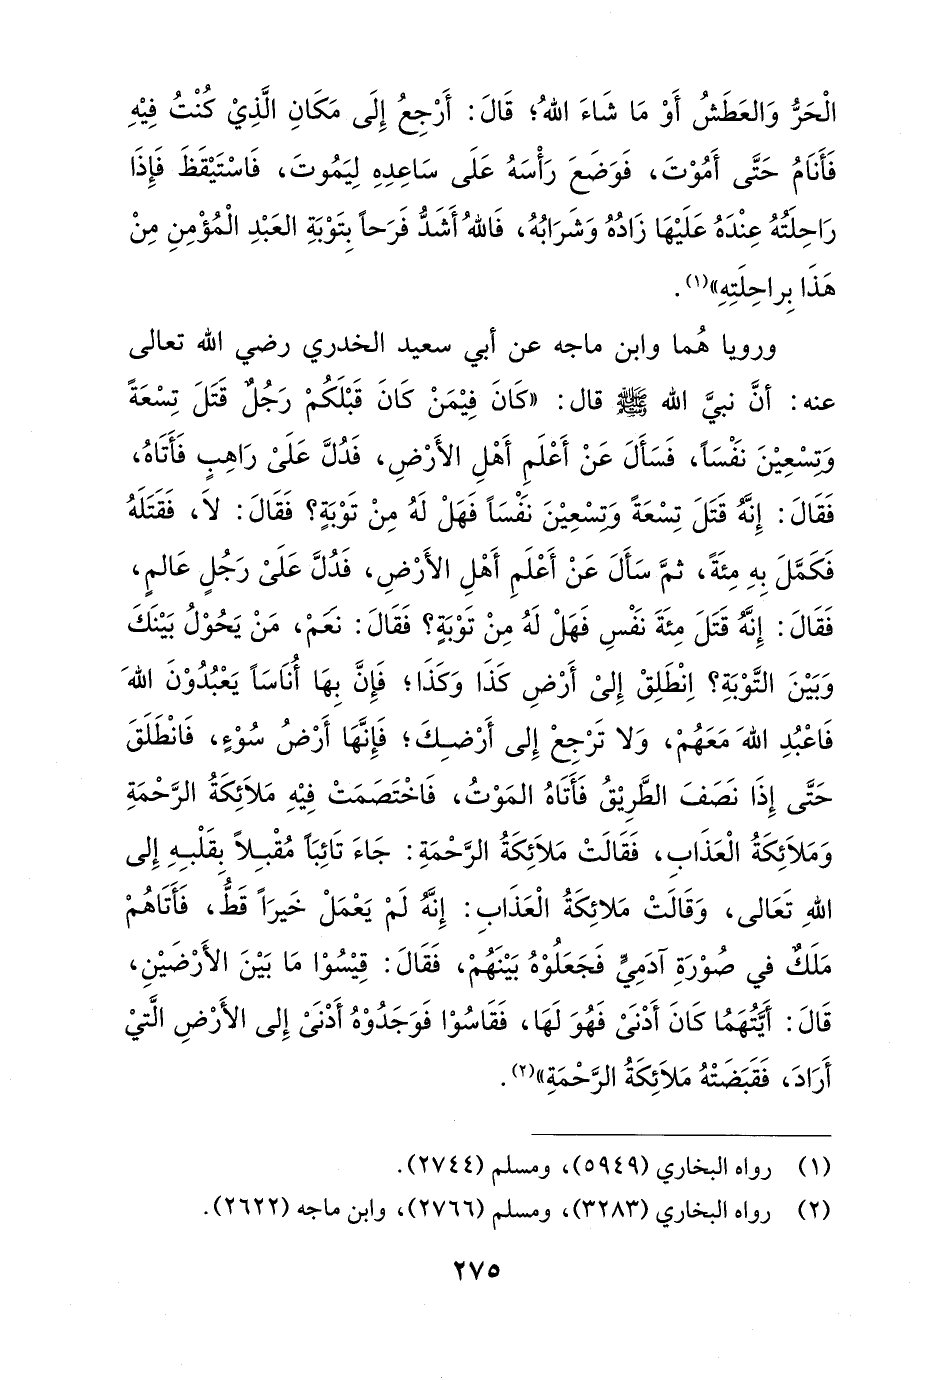 الْحَرُّ وَالعَطَشُ أَوْ مَا شَاءَ اللهُ؛ قَالَ: أَرْجِعُ إِلَى مَكَانِ الَّذِيْ كُنْتُ فِيْهِ
فَأَنَامُ حَتَّى أَمُوْتَ، فَوَضَعَ رَأْسَهُ عَلَى سَاعِدِهِ لِيَمُوتَ، فَاسْتَيْقَظَ فَإِذَا
رَاحِلَتُهُ عِنْدَهُ عَلَيْهَا زَادُهُ وَشَرَابُهُ، فَاللهُ أَشَدُّ فَرَحاً بِتَوْبَةِ العَبْدِ الْمُؤْمِنِ مِنْ
هَذَا بِراحِلَتِهِ»(١).
ورويا هُما وابن ماجه عن أبي سعيد الخدري رضي الله تعالى
عنه: أنَّ نبيَّ الله ﷺ قال: «كَانَ فِيْمَنْ كَانَ قَبْلَكُمْ رَجُلٌ قَتَلَ تِسْعَةً
وَتِسْعِيْنَ نَفْسَاً، فَسَأَلَ عَنْ أَعْلَمِ أَهْلِ الأَرْضِ، فَدُلَّ عَلَىْ رَاهِبٍ فَأَتَاهُ،
فَقَالَ: إِنَّهُ قَتَلَ تِسْعَةً وَتِسْعِيْنَ نَفْسَاً فَهَلْ لَهُ مِنْ تَوْبَةٍ؟ فَقَالَ: لاَ، فَقَتَلَهُ
فَكَمَّلَ بِهِ مِئَةً، ثمَّ سَأَلَ عَنْ أَعْلَمِ أَهْلِ الأَرْضِ، فَدُلَّ عَلَىْ رَجُلٍ عَالمٍ،
فَقَالَ: إِنَّهُ قَتَلَ مِئَةَ نَفْسٍ فَهَلْ لَهُ مِنْ تَوْبَةٍ؟ فَقَالَ: نَعَمْ، مَنْ يَحُوْلُ بَيْنَكَ
وَبَيْنَ التَّوْبَةِ؟ اِنْطَلِقْ إِلىْ أَرْضِ كَذَا وَكَذَا؛ فَإِنَّ بِهَا أُنَاسَاً يَعْبُدُوْنَ اللهَ
فَاعْبُدِ اللهَ مَعَهُمْ، وَلا تَرْجِعْ إِلى أَرْضِكَ؛ فَإِنَّهَا أَرْضُ سُوْءٍ، فَانْطَلَقَ
حَتَّى إِذَا نَصَفَ الطَّرِيْقُ فَأَتَاهُ المَوْتُ، فَاخْتَصَمَتْ فِيْهِ مَلاَئِكَةُ الرَّحْمَةِ
وَمَلاَئِكَةُ الْعَذَابِ، فَقَالَتْ مَلاَئِكَةُ الرَّحْمَةِ: جَاءَ تَائِبَاً مُقْبِلاً بِقَلْبِهِ إِلى
اللهِ تَعَالى، وَقَالَتْ مَلائِكَةُ الْعَذَابِ: إِنَّهُ لَمْ يَعْمَلْ خَيراً قَطُّ، فَأَتَاهُمْ
مَلَكٌ في صُوْرَةِ آدَمِيٍّ فَجَعَلُوْهُ بَيْنَهُمْ، فَقَالَ: قِيْسُوْا مَا بَيْنَ الأَرْضَيْنِ،
قَالَ: أَيَّتُهَمُا كَانَ أَدْنَىْ فَهُوَ لَهَا، فَقَاسُوْا فَوَجَدُوْهُ أَدْنَىْ إِلى الأَرْضِ الَّتيْ
أَرَادَ، فَقَبَضَتْهُ مَلاَئِكَةُ الرَّحْمَةِ»(٢).
(١) رواه البخاري (٥٩٤٩)، ومسلم (٢٧٤٤).
(٢) رواه البخاري (٣٢٨٣)، ومسلم (٢٧٦٦)، وابن ماجه (٢٦٢٢).
٢٧٥